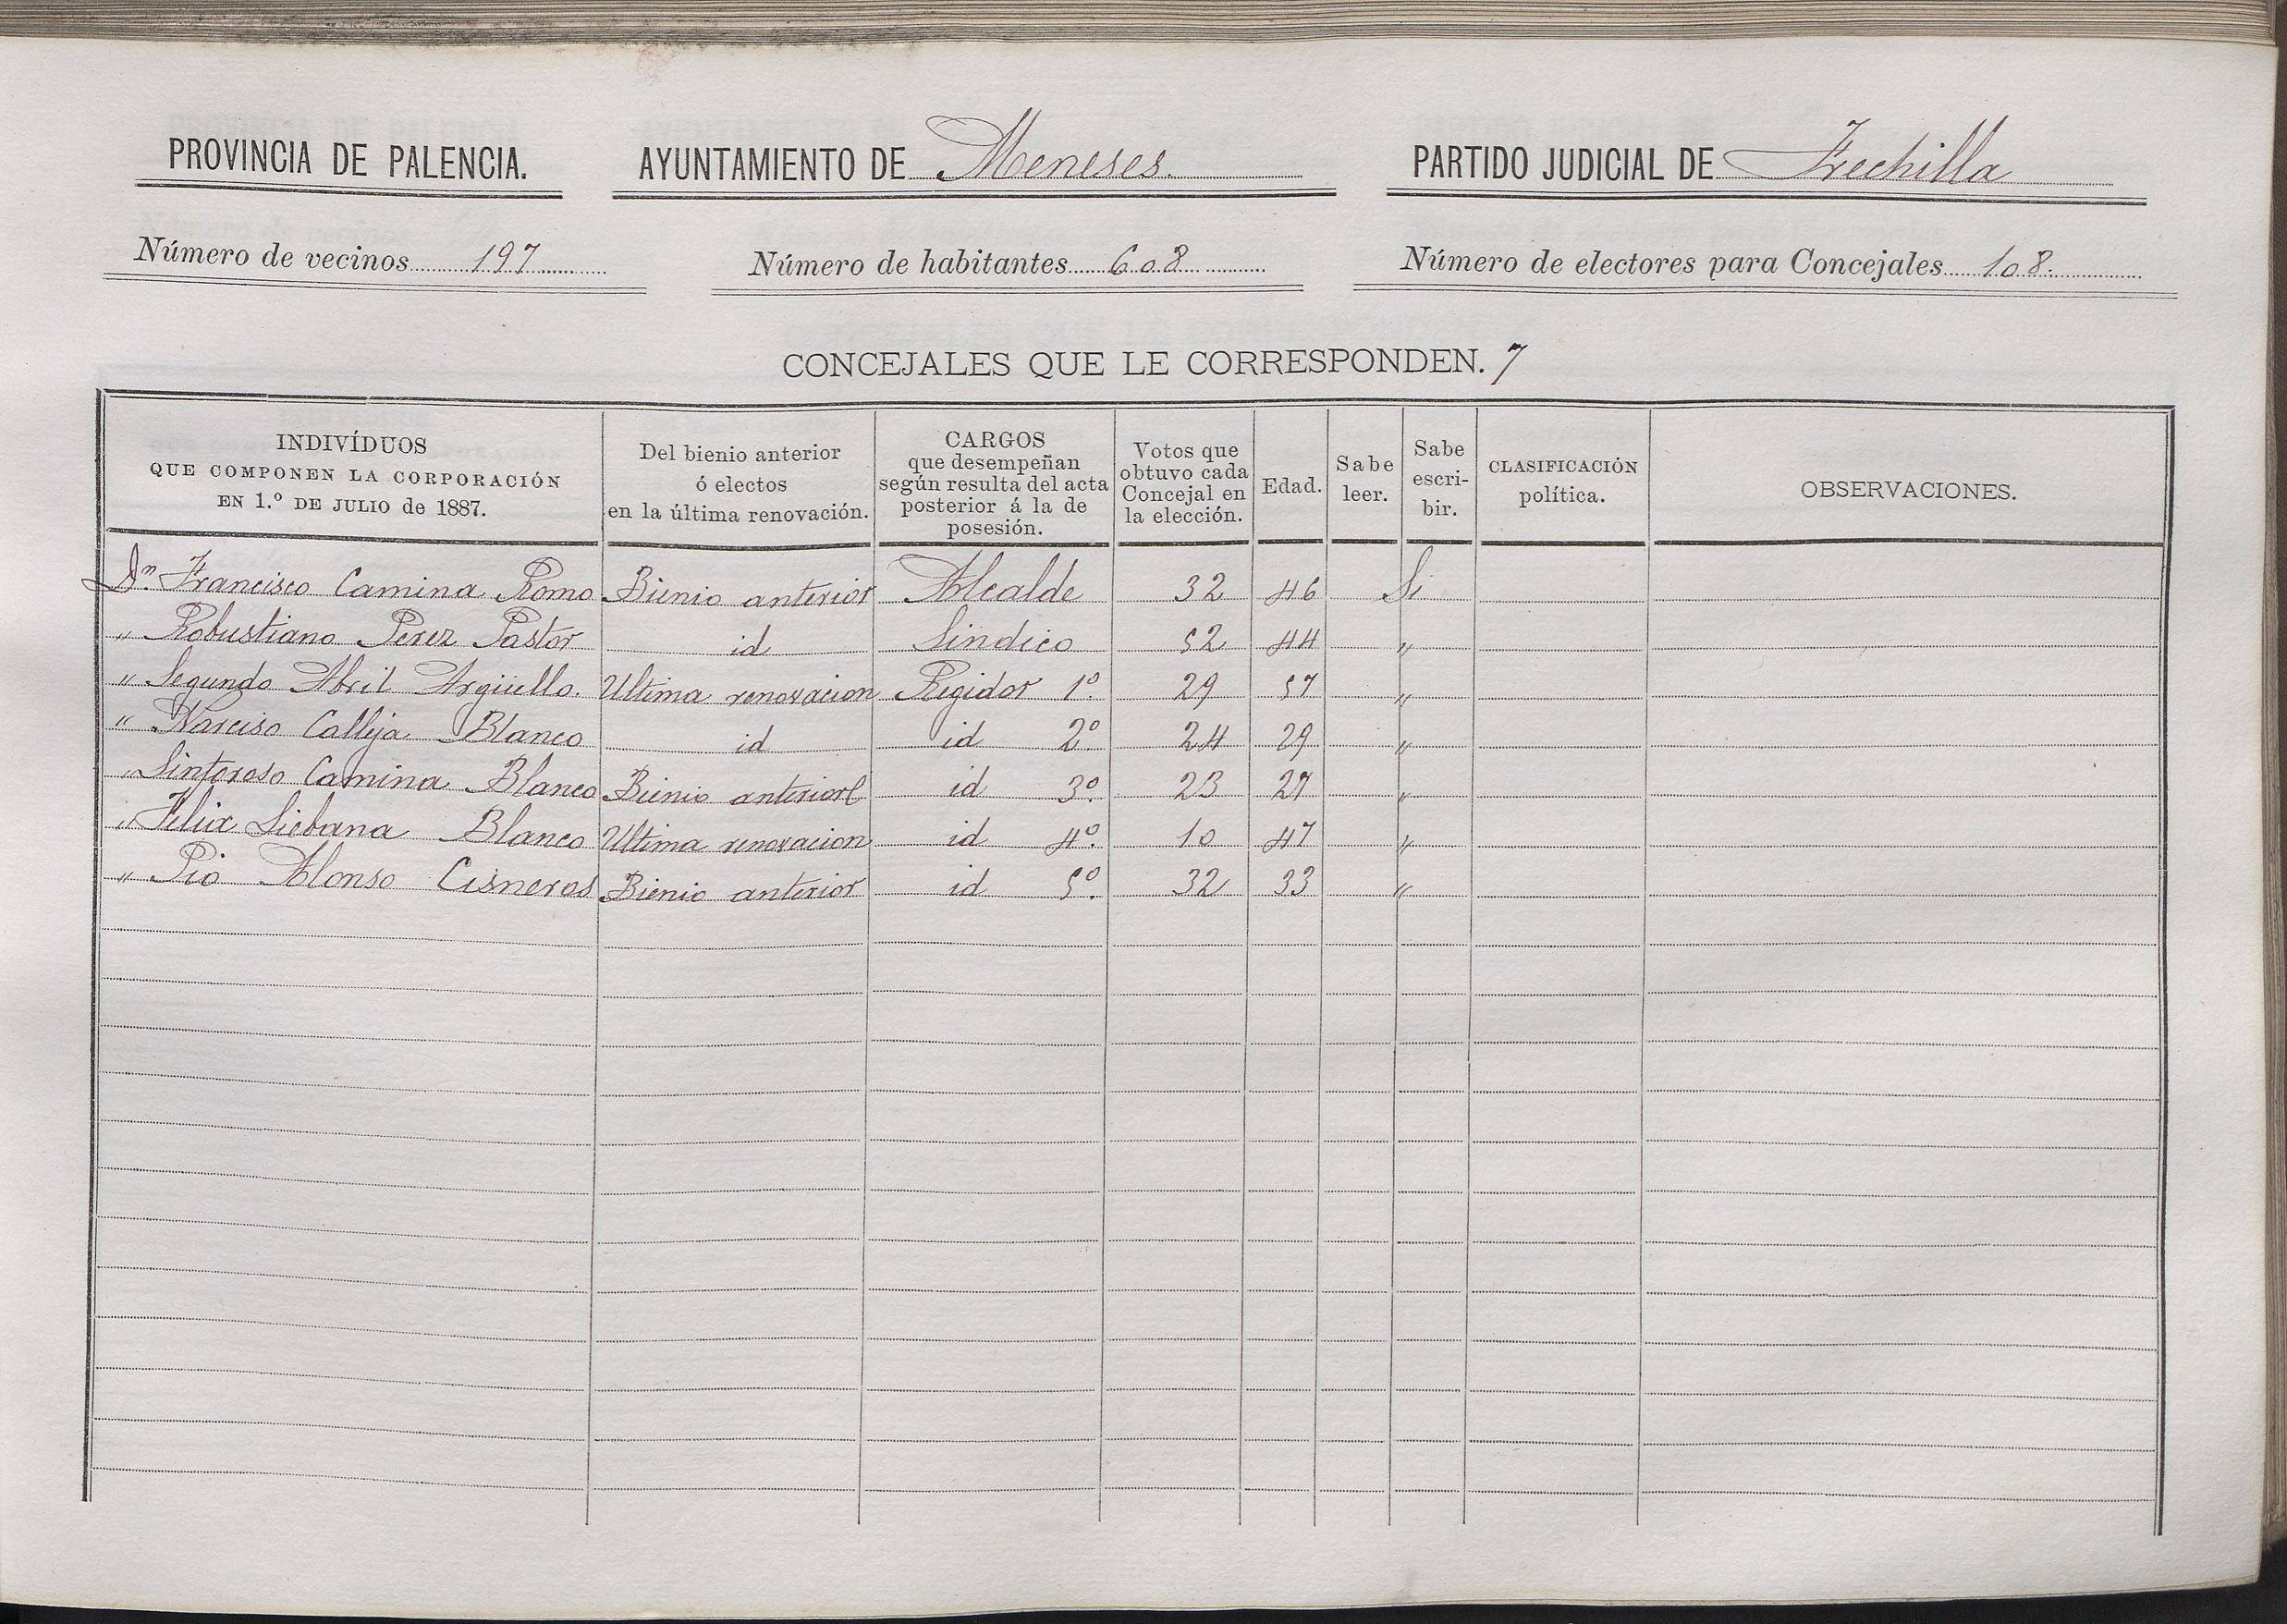 PROVINCIA DE PALENCIA. AYUNTAMIENTO DE Meneses. PARTIDO JUDICIAL DE Frechilla
Número de vecinos 197 Número de habitantes 608 Número de electores para Concejales 108.
CONCEJALES QUE LE CORRESPONDEN. 7
INDIVÍDUOS
QUE COMPONEN LA CORPORACIÓN
EN 1.º DE JULIO de 1887.
Del bienio anterior
ó electos
en la última renovación.
CARGOS
que desempeñan
según resulta del acta
posterior á la de
posesión.
Votos que
obtuvo cada
Concejal en
la elección.
Edad.
Sabe
leer.
Sabe
escri-
bir.
CLASIFICACIÓN
política.
OBSERVACIONES.
Dn. Francisco Camina Romo Bienio anterior Alcalde 32 46 Si
" Robustiano Perez Pastor id Sindico 52 44 "
" Segundo Abril Argüello. Ultima renovacion Regidor 1º. 29 57 "
" Narciso Calleja Blanco id id 2º. 24 29 "
" Sinforoso Camina Blanco Bienio anterior id 3º. 23 27 "
" Felix Liebana Blanco Ultima renovacion id 4º. 10 47 "
" Pio Alonso Cisneros Bienio anterior id 5º. 32 33 "